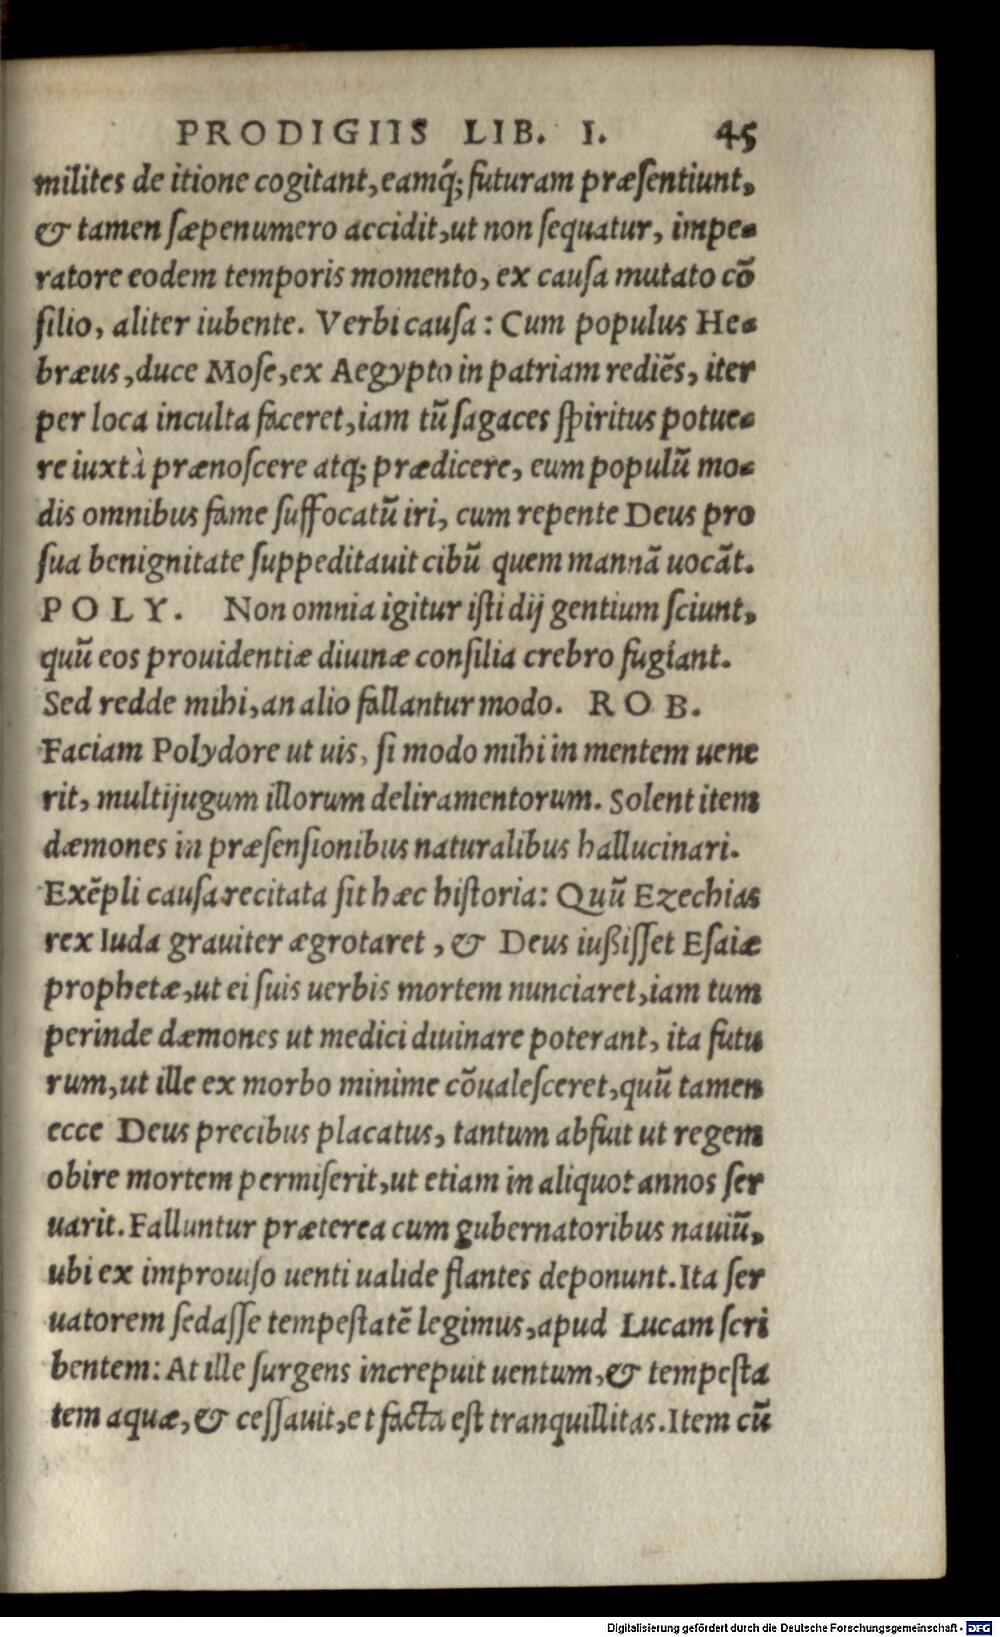 PRODIGIIS LIB. I. 45
milites de itione cogitant, eamq́; futuram præsentiunt,
& tamen sæpenumero accidit, ut non sequatur, impe-
ratore eodem temporis momento, ex causa mutato cõ
silio, aliter iubente. Verbi causa: Cum populus He-
bræus, duce Mose, ex Aegypto in patriam rediẽs, iter
per loca inculta faceret, iam tũ sagaces spiritus potue-
re iuxtà prænoscere atq; prædicere, eum populũ mo-
dis omnibus fame suffocatũ iri, cum repente Deus pro
sua benignitate suppeditauit cibũ quem mannã uocãt.
POLY. Non omnia igitur isti dij gentium sciunt,
quũ eos prouidentiæ diuinæ consilia crebro fugiant.
Sed redde mihi, an alio fallantur modo. ROB.
Faciam Polydore ut uis, si modo mihi in mentem uene
rit, multijugum illorum deliramentorum. Solent item
dæmones in præsensionibus naturalibus hallucinari.
Exẽpli causa recitata sit hæc historia: Quũ Ezechias
rex Iuda grauiter ægrotaret, & Deus iußisset Esaiæ
prophetæ, ut ei suis uerbis mortem nunciaret, iam tum
perinde dæmones ut medici diuinare poterant, ita futu
rum, ut ille ex morbo minime cõualesceret, quũ tamen
ecce Deus precibus placatus, tantum abfuit ut regem
obire mortem permiserit, ut etiam in aliquot annos ser
uarit. Falluntur præterea cum gubernatoribus nauiũ,
ubi ex improuiso uenti ualide flantes deponunt. Ita ser
uatorem sedasse tempestatẽ legimus, apud Lucam scri
bentem: At ille surgens increpuit uentum, & tempesta
tem aquæ, & cessauit, et facta est tranquillitas. Item cũ
Digitalisierung gefördert durch die Deutsche Forschungsgemeinschaft - DFG